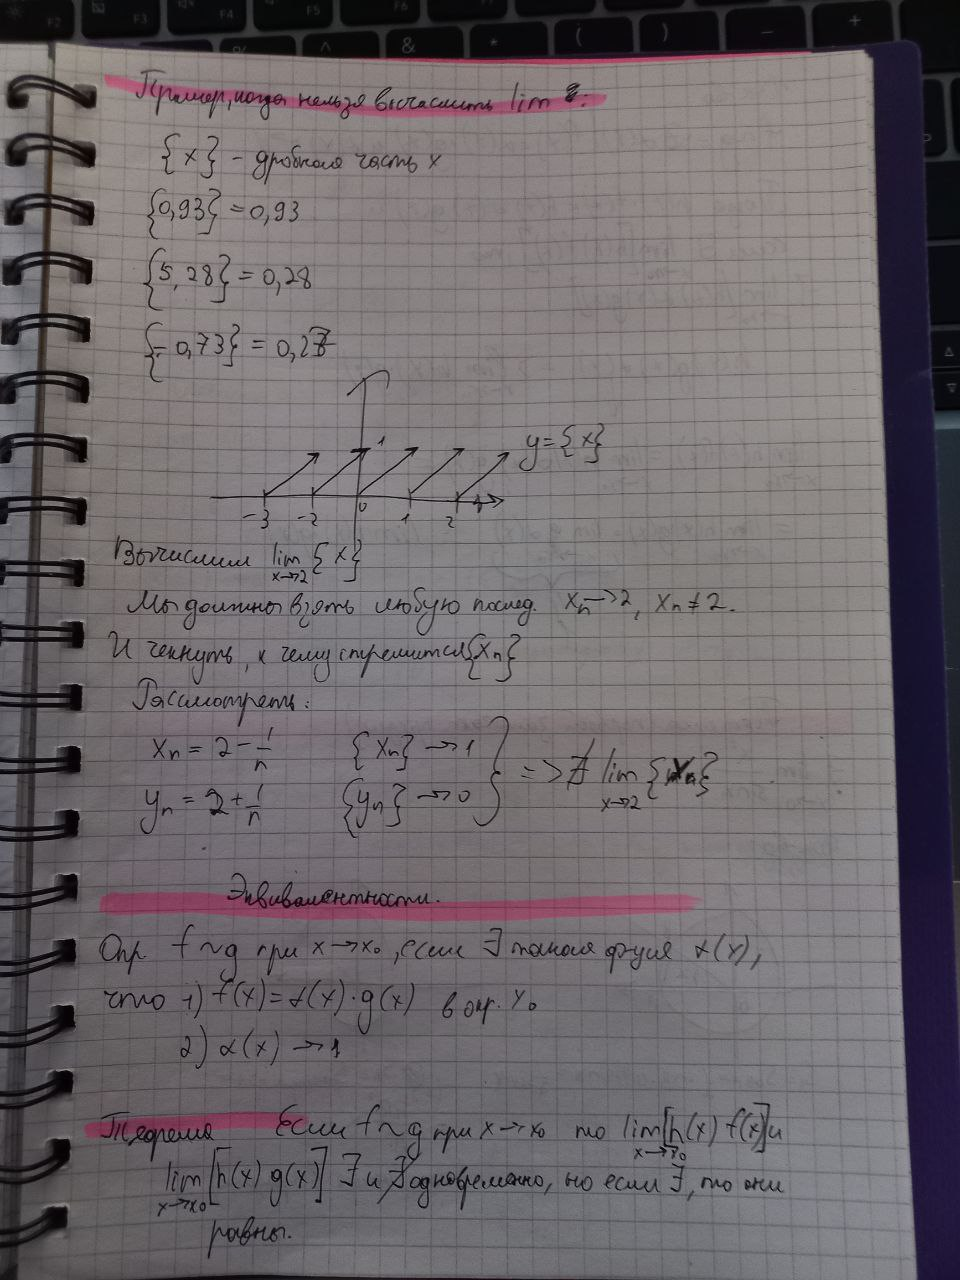 Пример, когда нельзя вычислить lim:
{x} - дробная часть x
{0,93} = 0,93
{5,28} = 0,28
{-0,73} = 0,27
1
y={x}
-3 -2 0 1 2
Вычислим lim {x}
x→2
Мы должны взять любую послед. xₙ→2, xₙ≠2.
И чекнуть, к чему стремится {xₙ}
Рассмотреть:
xₙ = 2 - 1/n {xₙ} → 1
=> ∄ lim {xₙ}
x→2
yₙ = 2 + 1/n {yₙ} → 0
Эквивалентности.
Опр f ~ g при x→x₀, если ∃ такая фуция α(x),
что 1) f(x) = α(x)·g(x) в окр. x₀
2) α(x) → 1
Теорема Если f ~ g при x→x₀ то lim [h(x) f(x)] и
x→x₀
lim [h(x) g(x)] ∃ и ∄ одновременно, но если ∃, то они
x→x₀
равны.